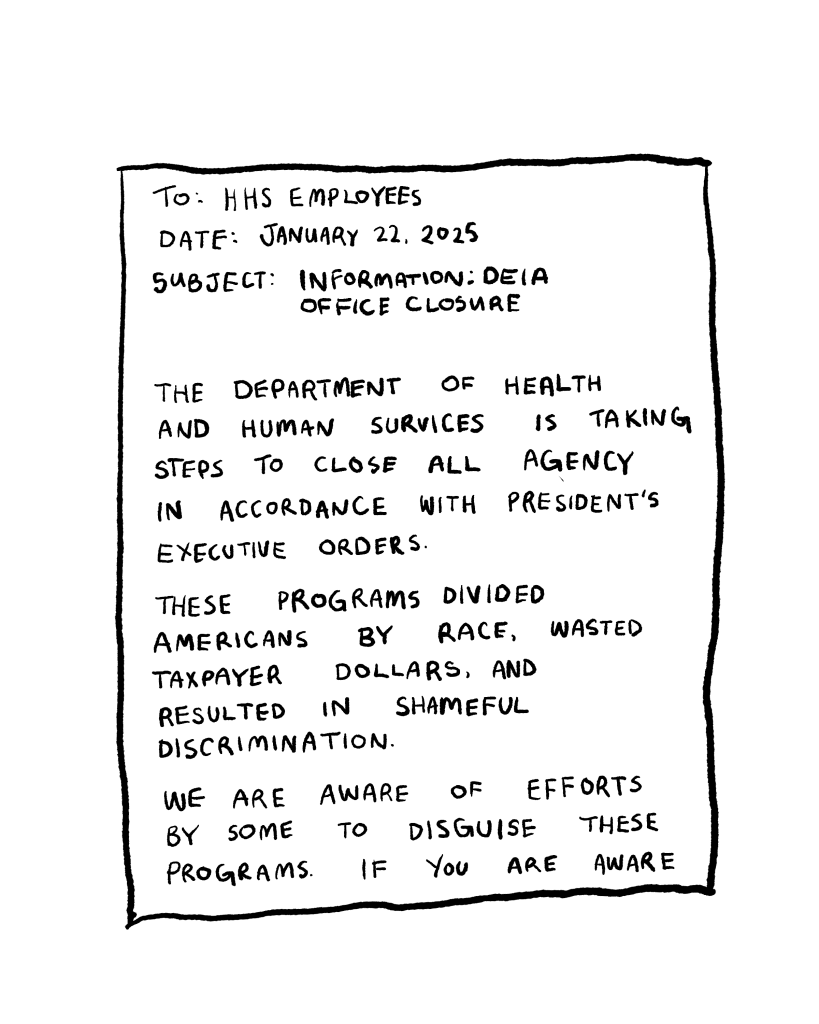 TO: HHS EMPLOYEES
DATE: JANUARY 22, 2025
SUBJECT: INFORMATION: DEIA
OFFICE CLOSURE
THE DEPARTMENT OF HEALTH
AND HUMAN SURVICES IS TAKING
STEPS TO CLOSE ALL AGENCY
IN ACCORDANCE WITH PRESIDENT'S
EXECUTIVE ORDERS.
THESE PROGRAMS DIVIDED
AMERICANS BY RACE, WASTED
TAXPAYER DOLLARS, AND
RESULTED IN SHAMEFUL
DISCRIMINATION.
WE ARE AWARE OF EFFORTS
BY SOME TO DISGUISE THESE
PROGRAMS. IF YOU ARE AWARE